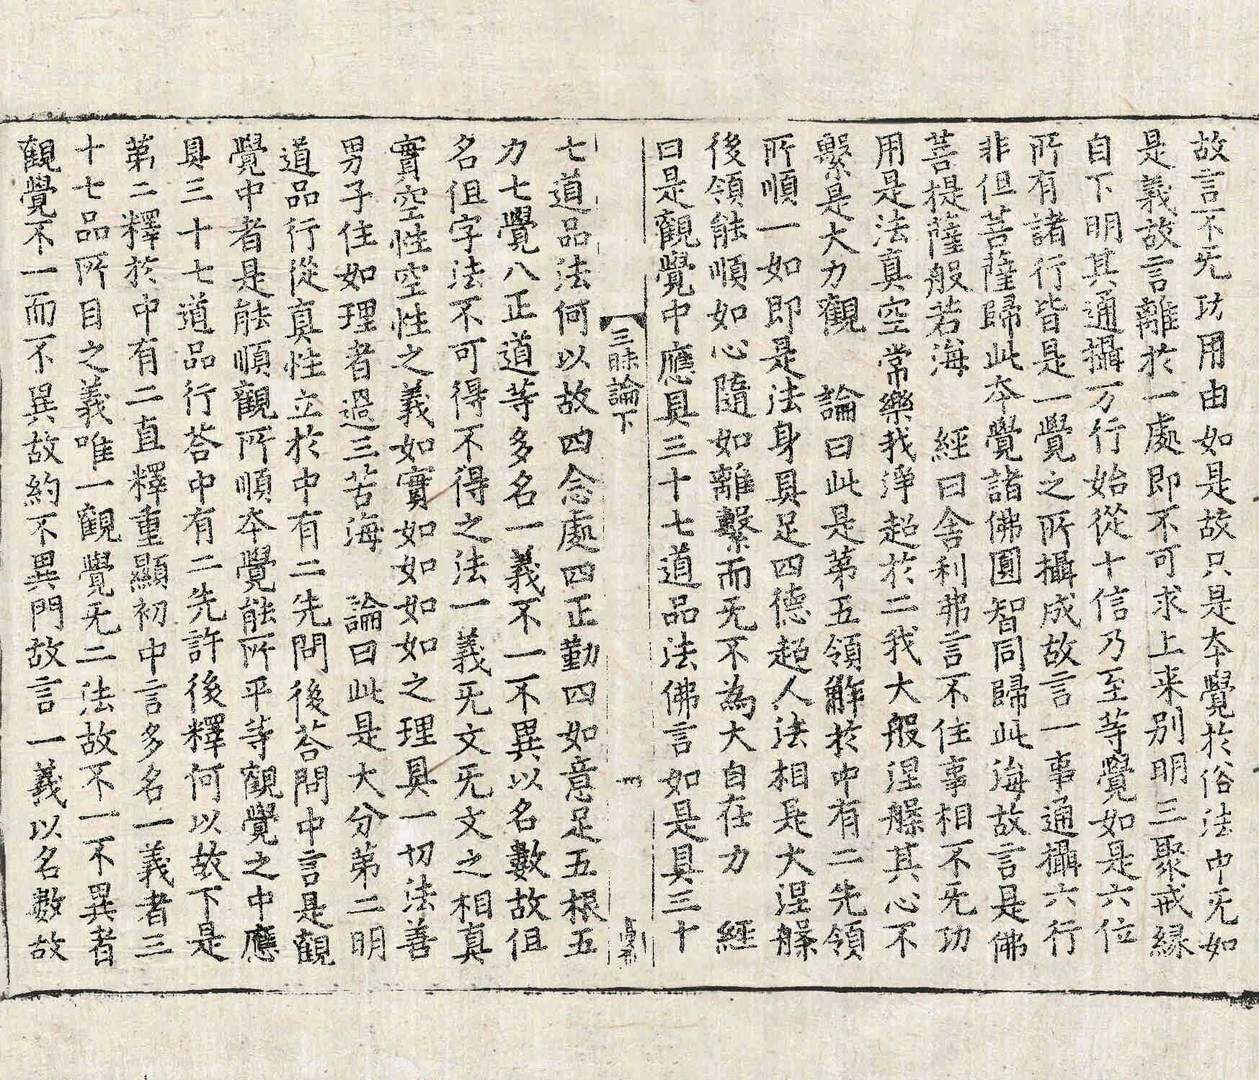 故言不无功用由如是故只是夲覺於俗法中无如
是義故言離於一處即不可求上来别明三聚戒緣
自下明其通攝万行始從十信乃至等覺如是六位
所有諸行皆是一覺之所攝成故言一事通攝六行
非但菩薩歸此夲覺諸佛圓智同歸此海故言是佛
菩提薩般若海　經曰舍利弗言不住事相不无功
用是法真空常樂我淨超於二我大般涅槃其心不
繫是大力觀　論曰此是第五領解於中有二先領
所順一如即是法身具足四德超人法相是大涅槃
後領能順如心隨如離繫而无不為大自在力　經
曰是觀覺中應具三十七道品法佛言如是具三十
三昧論下
七道品法何以故四念處四正勤四如意足五根五
力七覺八正道等多名一義不一不異以名數故但
名但字法不可得不得之法一義无文无文之相真
實空性空性之義如實如如如如之理具一切法善
男子住如理者過三苦海　論曰此是大分第二明
道品行從真性立於中有二先問後荅問中言是觀
覺中者是能順觀所順夲覺能所平等觀覺之中應
具三十七道品行荅中有二先許後釋何以故下是
第二釋於中有二直釋重顯初中言多名一義者三
十七品所目之義唯一觀覺无二法故不一不異者
觀覺不一而不異故約不異門故言一義以名數故